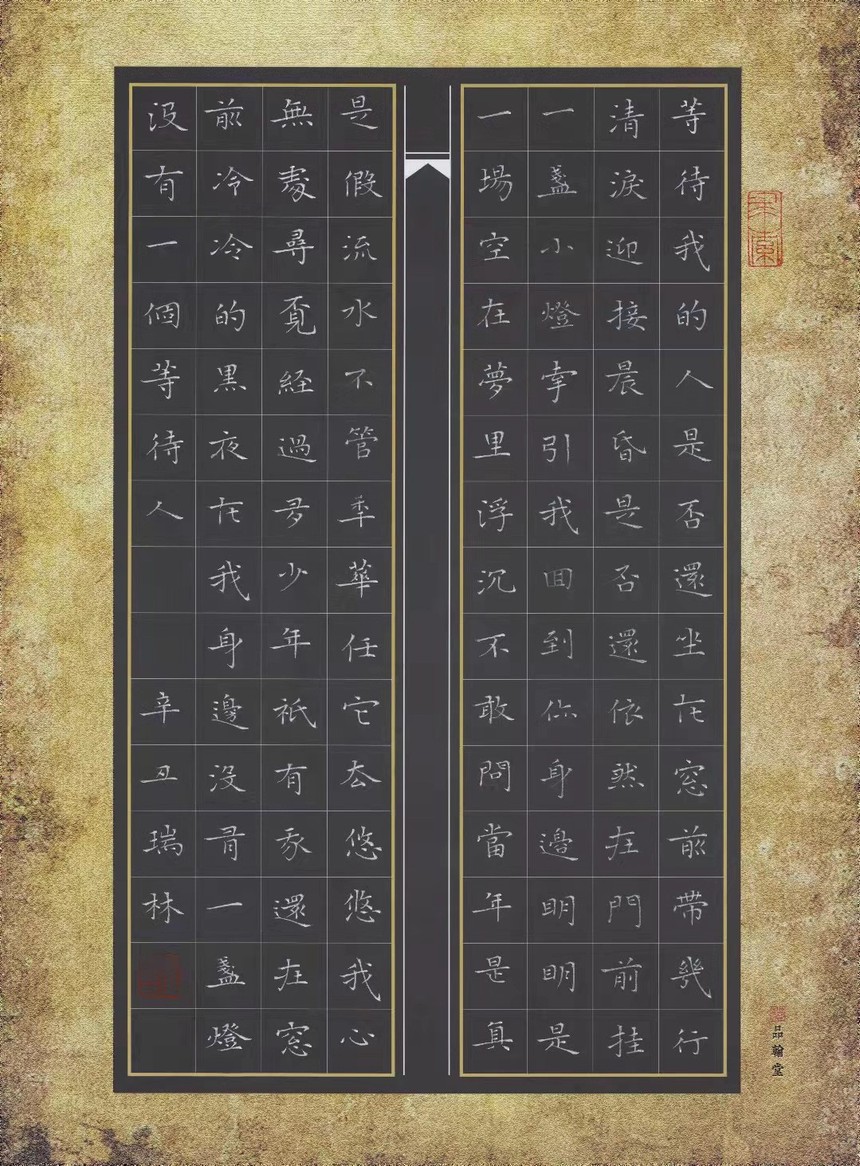 等待我的人是否還坐在窓前帶幾行
清淚迎接晨昏是否還依然在門前挂
一盞小燈牽引我回到你身邊明明是
一場空在夢里浮沉不敢問當年是真
是假流水不管年華任它去悠悠我心
無處尋覓經過多少年祇有我還在窓
前冷冷的黑夜在我身邊沒有一盞燈
沒有一個等待人
辛丑瑞林
品翰堂